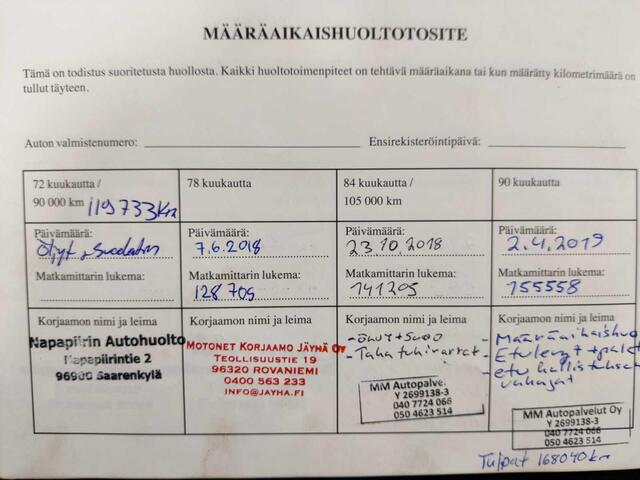 MÄÄRÄAIKAISHUOLTOTOSITE
Tämä on todistus suoritetusta huollosta. Kaikki huoltotoimenpiteet on tehtävä määräaikana tai kun määrätty kilometrimäärä on
tullut täyteen.
Auton valmistenumero:
Ensirekisteröintipäivä:
72 kuukautta /
90 000 km 119733km
Päivämäärä:
Öljyt + Suodatin
Matkamittarin lukema:
Korjaamon nimi ja leima
Napapiirin Autohuolto
Napapiirintie 2
96900 Saarenkylä
78 kuukautta
Päivämäärä:
7.6.2018
Matkamittarin lukema:
128 705
Korjaamon nimi ja leima
MOTONET KORJAAMO JÄYHÄ OY
TEOLLISUUSTIE 19
96320 ROVANIEMI
0400 563 233
INFO@JAYHA.FI
84 kuukautta /
105 000 km
Päivämäärä:
23.10.2018
Matkamittarin lukema:
141205
Korjaamon nimi ja leima
- Öljyt + Suod
- Takatukivarret
MM Autopalve
Y 2699138-3
040 7724 066
050 4623 514
90 kuukautta
Päivämäärä:
2.4.2019
Matkamittarin lukema:
155558
Korjaamon nimi ja leima
- Määräaikaishuo
- Etulevyt + palat
- etu kallistuksen
vakaajat
MM Autopalvelut Oy
Y 2699138-3
040 7724 066
050 4623 514
Tulpat 168040km